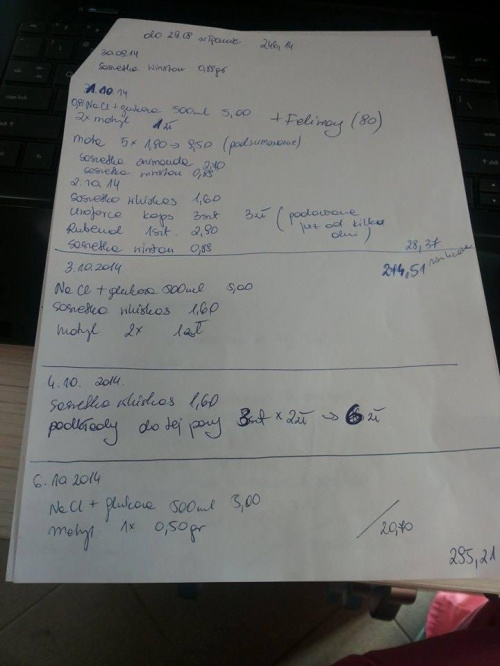 do 29.08 wtorek 246,14
30.09.14
saszetka winston 0,88gr
1.10.14
NaCl + glukoza 500ml 5,00 + Feliway (80)
2x motyl 1zł
mokre 5 x 1,90 → 9,50 (podsumowanie)
saszetka animonda 2,40
saszetka winston 0,88
2.10.14
saszetka whiskas 1,60
kaps 3szt 3zł (podawane już od kilku dni)
Rubenal 1szt. 2,90
saszetka winston 0,88
28,37
274,51
3.10.2014
NaCl + glukoza 500ml 5,00
saszetka whiskas 1,60
motyl 2x 1zł
4.10.2014.
saszetka whiskas 1,60
podkłady do tej pory 3szt x 2zł → 6zł
6.10.2014
NaCl + glukoza 500ml 5,00
motyl 1x 0,50gr
20,70
295,21